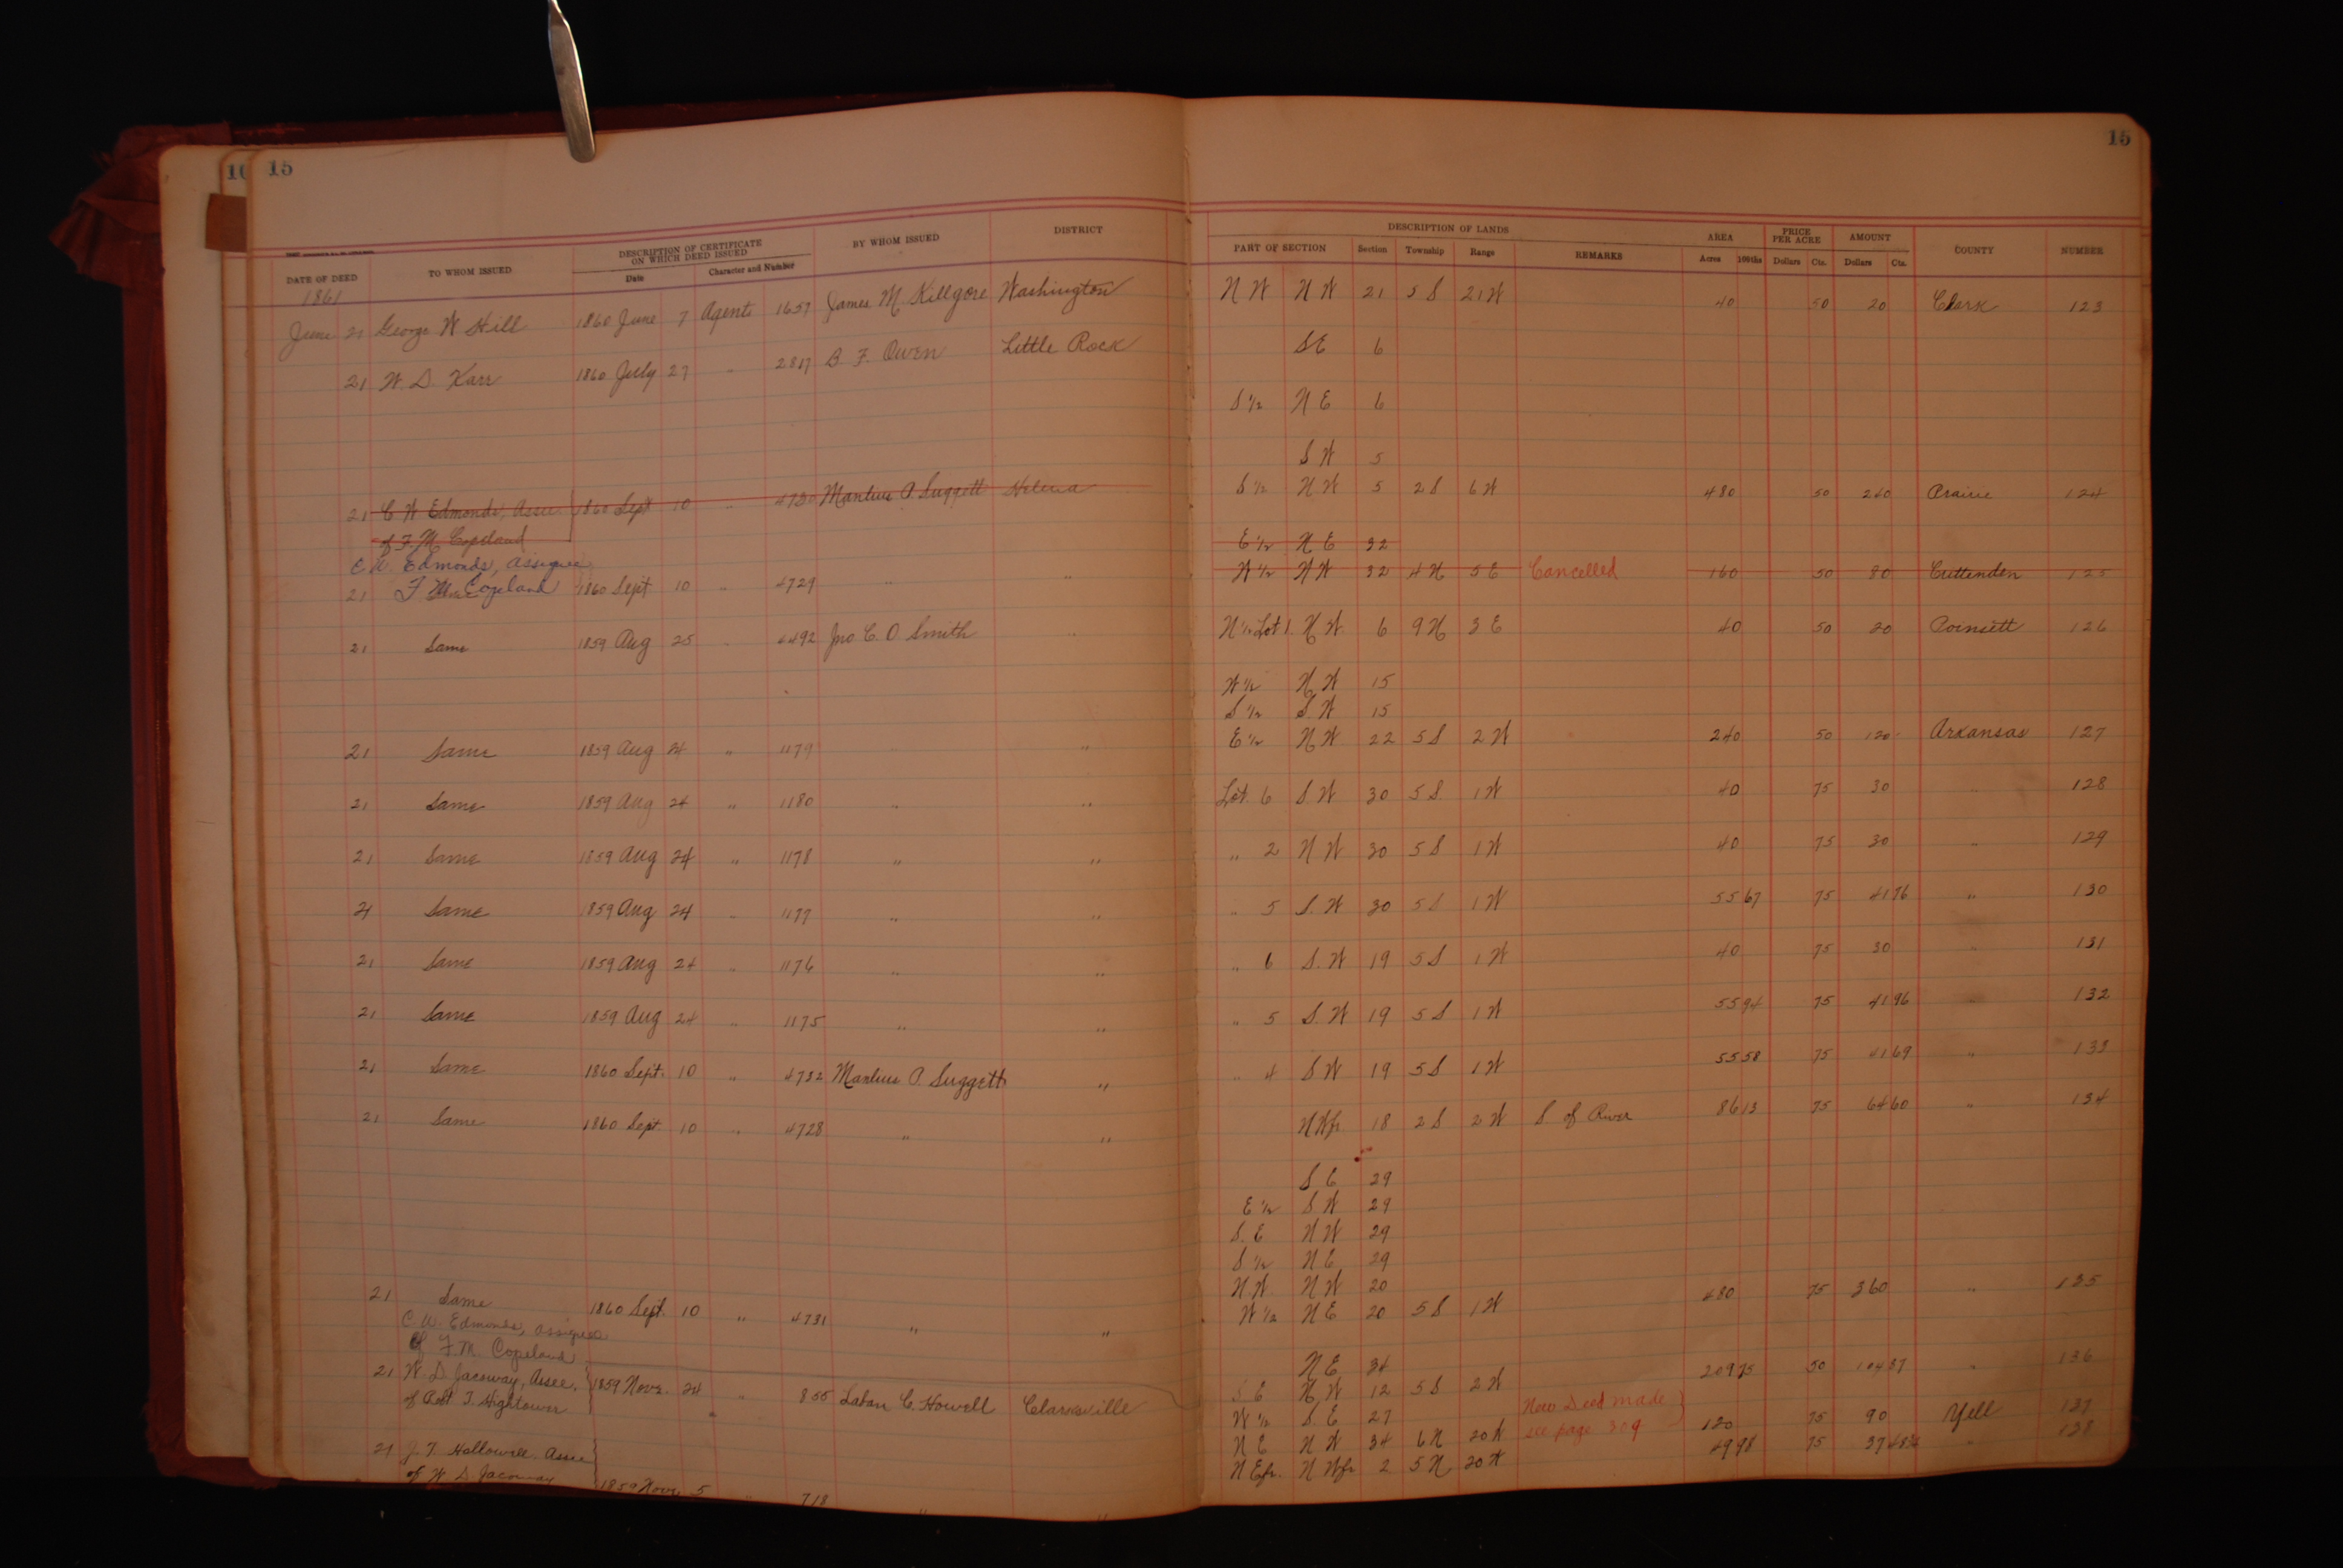 15
15
DATE OF DEED TO WHOM ISSUED DESCRIPTION OF CERTIFICATE ON WHICH DEED ISSUED Date Character and Number BY WHOM ISSUED DISTRICT
DESCRIPTION OF LANDS PART OF SECTION Section Township Range REMARKS AREA Acres 100ths PRICE PER ACRE Dollars Cts. AMOUNT Dollars Cts. COUNTY NUMBER
1861
June 21 George W Hill 1860 June 7 Agent 1657 James M. Killgore Washington N W N W 21 5 S 21 W 40 50 20 Clark 123
21 W. D. Karr 1860 July 27 " 2817 B. F. Owen Little Rock S E 6
S 1/2 N E 6
S W 5
S 1/2 N W 5 2 S 6 W 480 50 240 Prairie 124
21 C W Edmonds, Assee 1860 Sept 10 " 4730 Manlius P Suggett Helena
of F. M. Copeland E 1/2 N E 32
W 1/2 N W 32 4 N 5 E Cancelled 160 50 80 Crittenden 125
C W. Edmonds, assignee
21 F. M. Copeland 1860 Sept 10 " 4729 " "
N 1/2 Lot 1 N W. 6 9 N 3 E 40 50 20 Poinsett 126
21 Same 1859 Aug 25 " 4492 Jno C. O. Smith "
W 1/2 N W 15
S 1/2 S. W 15
21 Same 1859 Aug 24 " 1179 " " E 1/2 N W 22 5 S 2 W 240 50 120 Arkansas 127
21 Same 1859 Aug 24 " 1180 " " Lot 6 S. W 30 5 S. 1 W 40 75 30 " 128
21 Same 1859 Aug 24 " 1178 " " " 2 N W 30 5 S 1 W 40 75 30 " 129
21 Same 1859 Aug 24 " 1177 " " " 5 S. W 30 5 S 1 W 55 67 75 41 76 " 130
21 Same 1859 Aug 24 " 1176 " " " 6 S. W 19 5 S 1 W 40 75 30 " 131
21 Same 1859 Aug 24 " 1175 " " " 5 S. W 19 5 S 1 W 55 94 75 41 96 " 132
21 Same 1860 Sept. 10 " 4732 Manlius P. Suggett " " 4 S W 19 5 S 1 W 55 58 75 41 69 " 133
21 Same 1860 Sept. 10 " 4728 " " N W fr 18 2 S 2 W S of River 86 13 75 64 60 " 134
S E 29
E 1/2 S W 29
S. E N W 29
S 1/2 N E 29
N. W. N W 20
21 Same 1860 Sept. 10 " 4731 " " W 1/2 N E 20 5 S 1 W 480 75 360 " 135
C. W. Edmonds, assignee
of F. M. Copeland
N E 34
S E N. W 12 5 S 2 W 209 75 50 104 87 " 136
21 W. D. Jacoway, Assee. 1859 Novr. 24 " 855 Laban C. Howell Clarksville
of Robt T. Hightower
W 1/2 S. E 27 New Deed made
N E N W 34 6 N 20 W see page 309 120 75 90 Yell 137
N E fr. N W fr 2 5 N 20 W 49 98 75 37 48 " 138
21 J. T. Hallowell Assee
of W. D. Jacoway 1859 Novr 5 " 718 " "